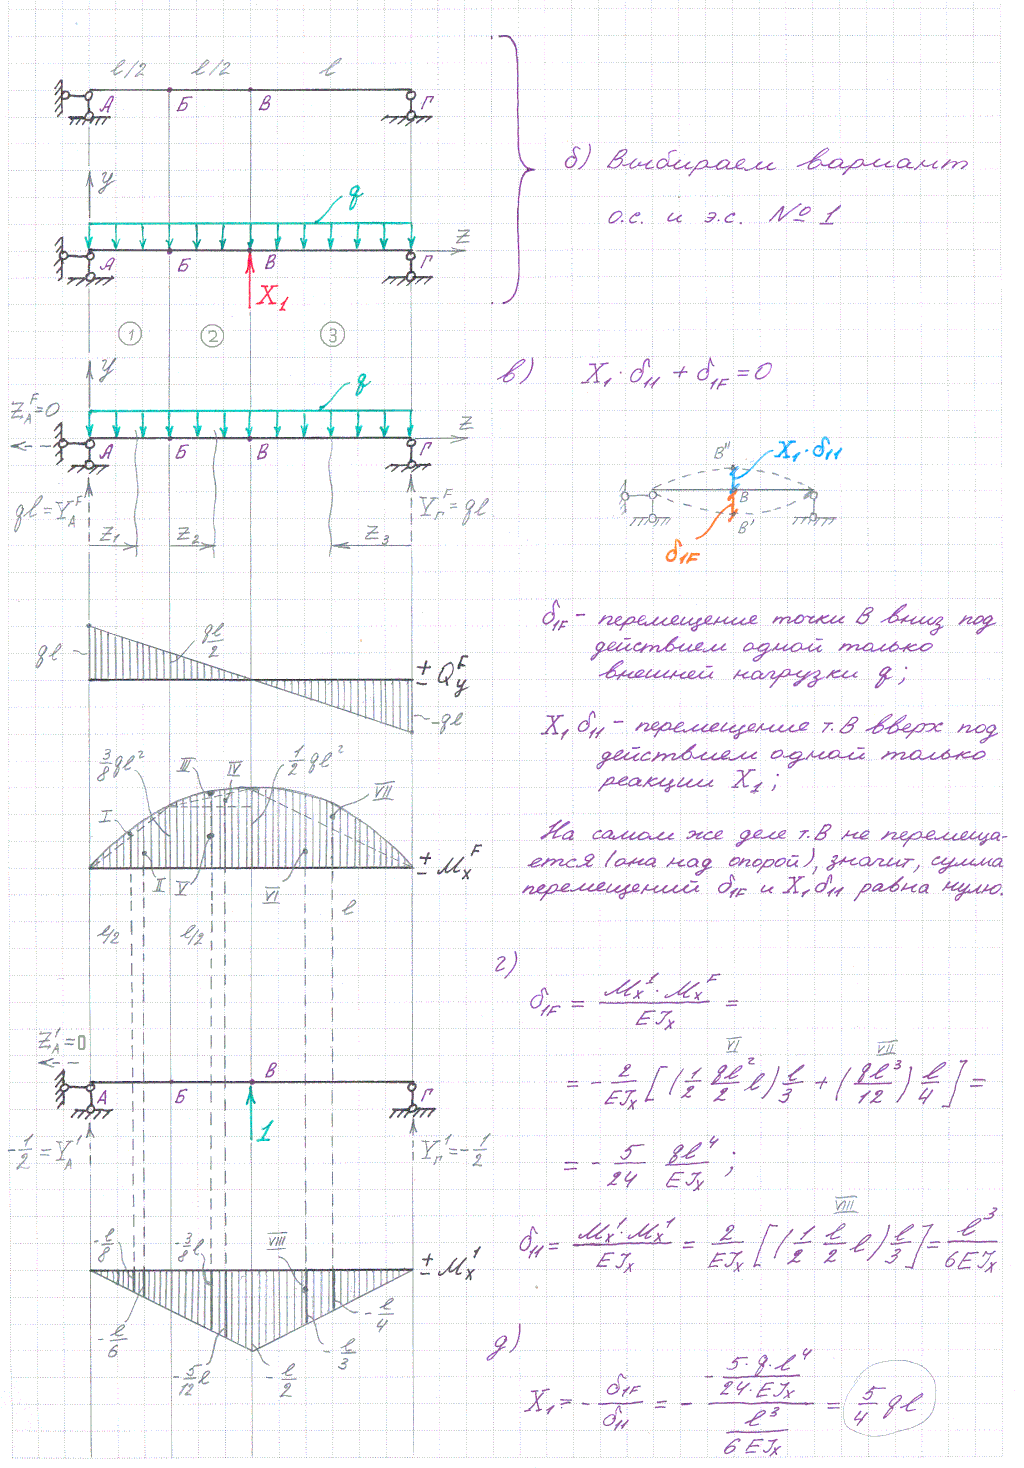 l/2 l/2 l
А Б В Г
y q z
А Б В Г
X₁
б) Выбираем вариант
о.с. и э.с. №1
① ② ③
y q z
Z_A^F=0
А Б В Г
ql=Y_A^F Y_Г^F=ql
z₁ z₂ z₃
в) X₁·δ₁₁ + δ₁F = 0
В'' X₁·δ₁₁
В
В'
δ₁F
ql ql/2 + − Q_y^F
−ql
δ₁F – перемещение точки В вниз под
действием одной только
внешней нагрузки q;
X₁δ₁₁ – перемещение т.В вверх под
действием одной только
реакции X₁;
На самом же деле т.В не перемеща-
ется (она над опорой), значит, сумма
перемещений δ₁F и X₁δ₁₁ равна нулю.
3/8 ql² III IV 1/2 ql² VII
I
II V VI + − M_x^F
l/2 l/2 l
г)
δ₁F = M_x^1·M_x^F / EJ_x =
VI VII
= − 2/EJ_x [(1/2 ql²/2 l) l/3 + (ql³/12) l/4] =
= − 5/24 ql⁴/EJ_x ;
VIII
δ₁₁ = M_x^1·M_x^1 / EJ_x = 2/EJ_x [(1/2 l/2 l) l/3] = l³/6EJ_x
Z_A^1=0
А Б В Г
−1/2 = Y_A^1 1 Y_Г^1 = −1/2
−l/8 −3/8 l VIII + − M_x^1
−l/6 −5/12 l −l/2 −l/3 −l/4
д)
X₁ = − δ₁F/δ₁₁ = − (−5·q·l⁴/24·EJ_x) / (l³/6EJ_x) = 5/4 ql